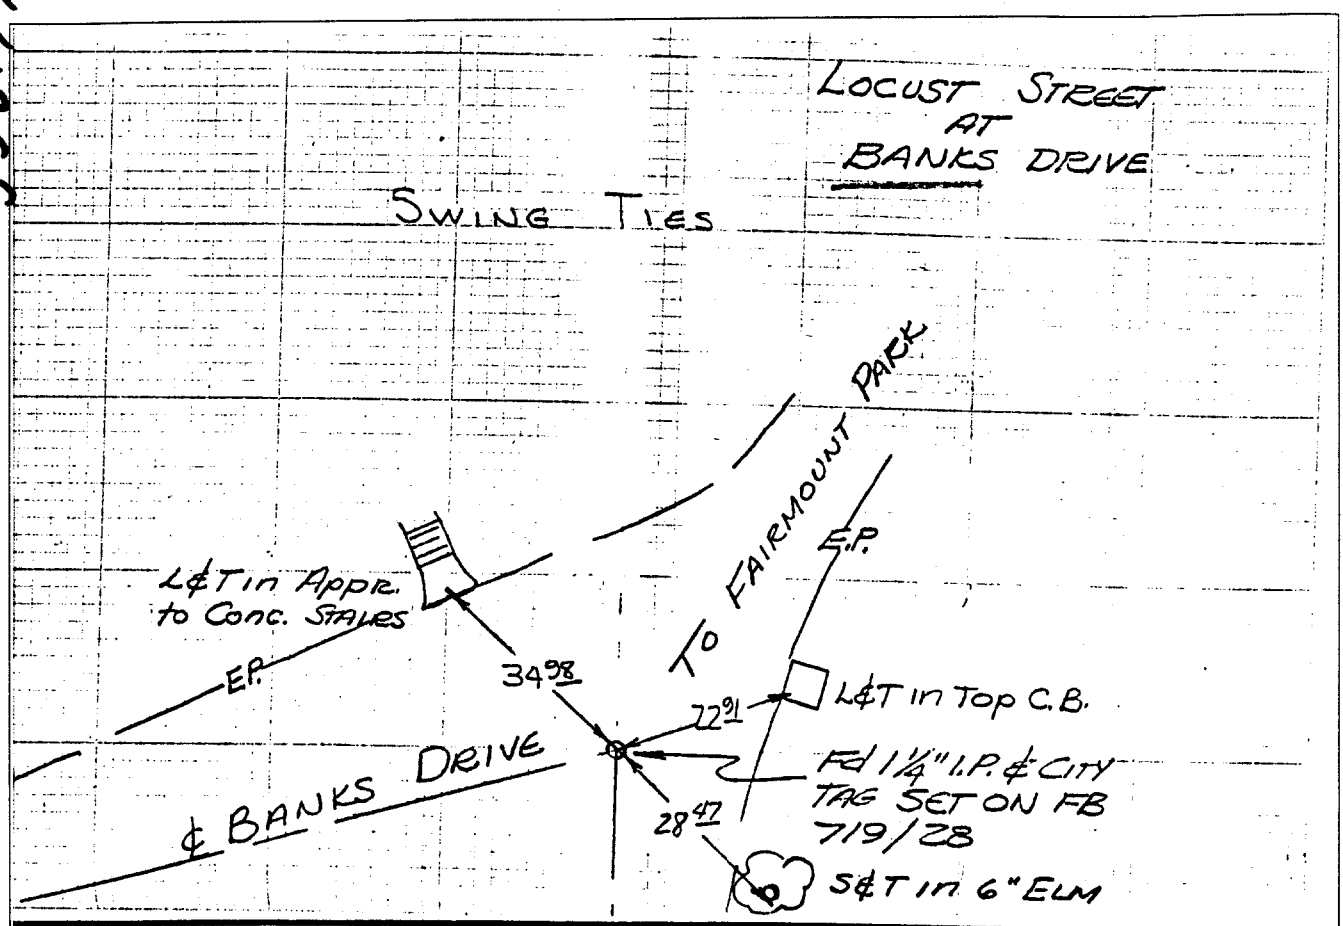 LOCUST STREET
AT
BANKS DRIVE
SWING TIES
TO FAIRMOUNT PARK
E.P.
L&T in Appr.
to Conc. STAIRS
E.P.
34 98
22 91
L&T in Top C.B.
℄ BANKS DRIVE
Fd 1¼" I.P. & CITY
TAG SET ON FB
719/28
28 47
S&T in 6" ELM